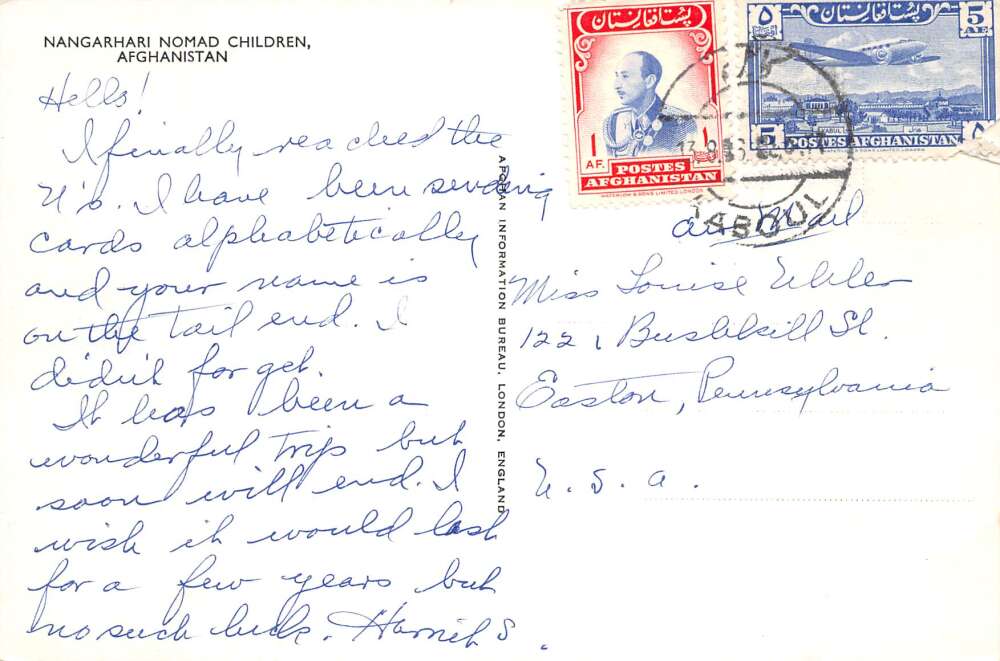 NANGARHARI NOMAD CHILDREN,
AFGHANISTAN
Hello!
I finally reached the
U's. I have been sending
cards alphabetically
and your name is
on the tail end. I
didn't forget.
It has been a
wonderful trip but
soon will end. I
wish it would last
for a few years but
no such luck. Harriet S.
AFGHAN INFORMATION BUREAU, LONDON, ENGLAND
پښت افغانستان
1 1
AF.
POSTES
AFGHANISTAN
پښت افغانستان
۵ 5
KABUL
5 ۵
POSTES AFGHANISTAN
KABOUL
air Mail
Miss Louise Uhler
1221 Bushkill St.
Easton, Pennsylvania
U. S. A.